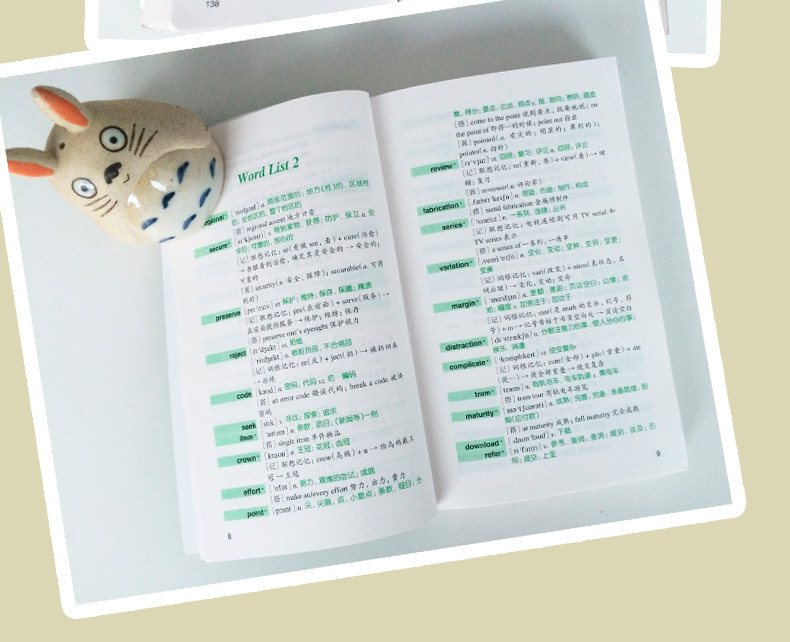 138
Word List 2
regional
secure
[记] 联想记忆: se(看做 see, 看) + cure(治愈)
→ 亲眼看到治愈, 确定其是安全的 → 安全的;
可靠的
[派] security(n. 安全, 保障); securable(a. 可得
到的)
preserve vt. 保护; 维持; 保存, 保藏; 腌渍
[记] 联想记忆: pre(在前面) + serve(服务) →
在前面提供服务 → 保护; 维持; 保存
[搭] preserve one's eyesight 保护视力
reject [rɪ'dʒekt] vt. 拒绝
['riːdʒekt] n. 被拒货品, 不合格品
[记] 词根记忆: re(反) + ject(扔) → 被扔回来
→ 拒绝
code [kəʊd] n. 密码, 代码 vt. 把…编码
[搭] an error code 错误代码; break a code 破译
密码
seek [siːk] v. 寻找; 探索; 追求
item ['aɪtəm] n. 条款, 项目; (新闻等)一则
[搭] single item 单件物品
crown [kraʊn] n. 王冠; 花冠; 齿冠
[记] 联想记忆: crow(乌鸦) + n → 给乌鸦戴王
冠 → 王冠
effort ['efət] n. 努力, 艰难的尝试; 成就
[搭] make an/every effort 努力, 出力, 费力
point [pɔɪnt] n. 尖, 尖端; 点, 小数点; 条款, 细目; 分
8
数, 得分; 要点, 论点, 观点 v. 指, 指向; 表明, 瞄准
[搭] come to the point 说到要点, 扼要地说; on
the point of 即将…的时候; point out 指出
[派] pointed(a. 有尖的; 明显的; 犀利的);
pointer(n. 指针)
review [rɪ'vjuː] vt. 回顾; 复习; 评论 n. 回顾; 评论
[记] 联想记忆: re(重新, 再) + view(看) → 回
顾; 复习
[派] reviewer(n. 评论家)
fabrication [ˌfæbrɪ'keɪʃn] n. 捏造, 伪造; 制作, 构成
[搭] metal fabrication 金属预制件
series ['sɪəriːz] n. 一系列, 连续; 丛书
[记] 联想记忆: 电视连续剧可用 TV serial 和
TV series 表示
[搭] a series of 一系列, 一连串
variation [ˌveəri'eɪʃn] n. 变化, 变动; 变种, 变异; 变更;
变奏
[记] 词根记忆: vari(改变) + ation(表状态, 名
词后缀) → 变化, 变动; 变异
margin ['mɑːdʒɪn] n.
[记] 词根记忆: mar(是 mark 的变体, 记号, 符
号) + in → 记号常标于书页空白处 → 页边空白
distraction [dɪ'strækʃn] n. 分散注意力的事, 使人分心的事;
娱乐, 消遣
complicate ['kɒmplɪkeɪt] vt. 使变复杂
[记] 词根记忆: com(全部) + plic(重叠) + ate
(使…) → 使全部重叠 → 使变复杂
tram [træm] n. 有轨电车, 电车轨道 v. 乘电车
[搭] tram tour 有轨电车游览
maturity [mə'tʃʊərəti] n. 成熟; 完善, 完备, 准备就绪; 到
期(应付款)
[搭] at maturity 成熟; full maturity 完全成熟
download [ˌdaʊn'ləʊd] v. 下载
refer [rɪ'fɜː(r)] v. 参考, 查阅; 查询; 提到, 谈及; 引
用; 提交, 上呈
9